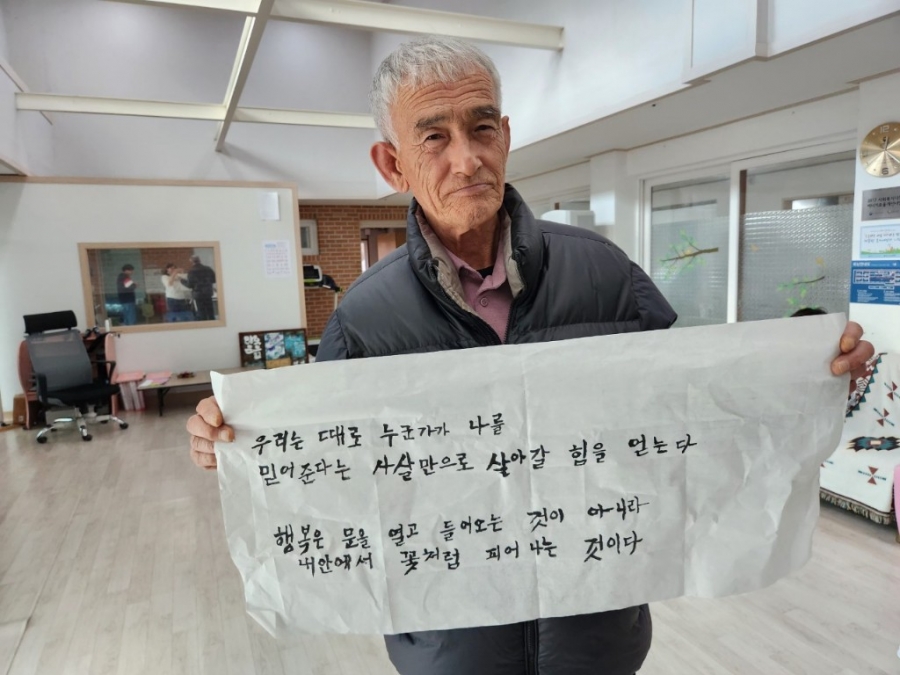 우리는 때로 누군가가 나를
믿어준다는 사살만으로 살아갈 힘을 얻는다
행복은 문을 열고 들어오는 것이 아니라
내안에서 꽃처럼 피어 나는 것이다